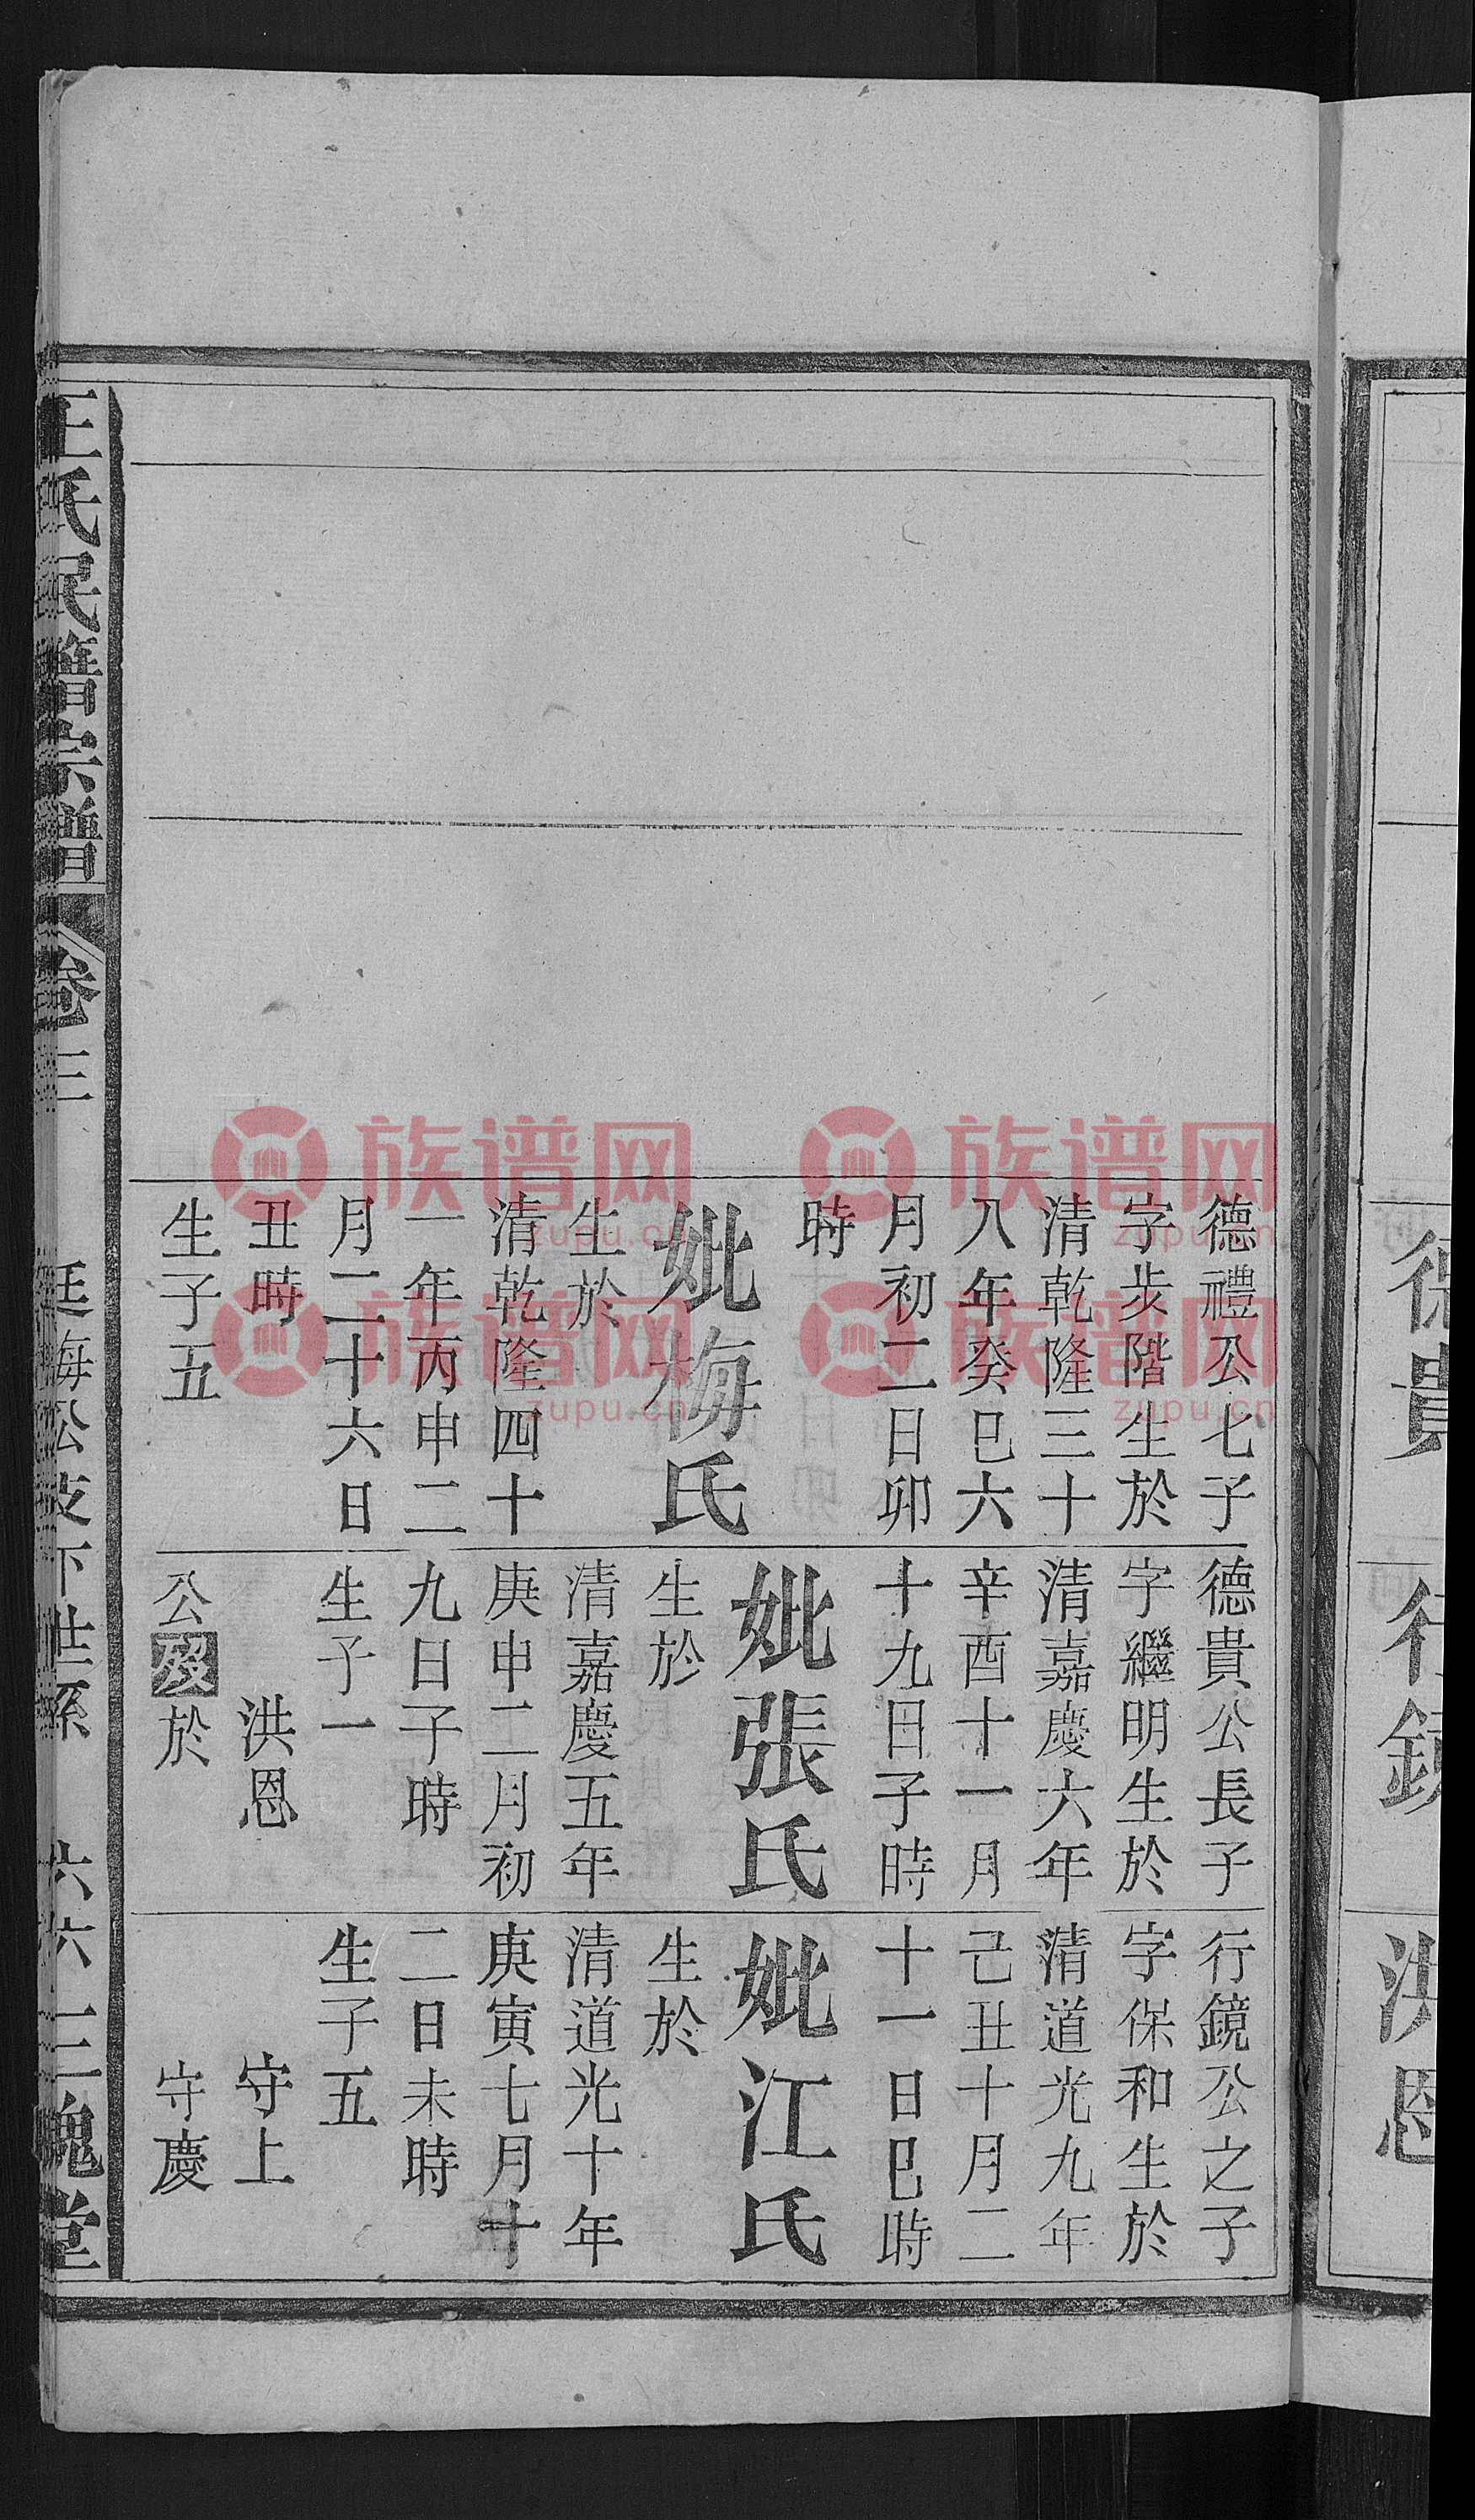 德貴
行鏡
洪恩
德禮公七子
字步階生於
清乾隆三十
八年癸巳六
月初二日卯
時
妣梅氏
生於
清乾隆四十
一年丙申二
月二十六日
丑時
生子五
德貴公長子
字繼明生於
清嘉慶六年
辛酉十一月
十九日子時
妣張氏
生於
清嘉慶五年
庚申二月初
九日子時
生子一
洪恩
公歿於
行鏡公之子
字保和生於
清道光九年
己丑十月二
十一日巳時
妣江氏
生於
清道光十年
庚寅七月十
二日未時
生子五
守上
守慶
王氏民籍宗譜
卷三
廷海公支下世系
六六
三槐堂
族谱网
zupu.cn
族谱网
zupu.cn
族谱网
zupu.cn
族谱网
zupu.cn